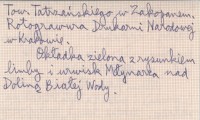 Tow. Tatrzańskiego w Zakopanem.
Rotograwura Drukarni Narodowej
w Krakowie.
Okładka zielona z rysunkiem
limby i urwisk Młynarza nad
Doliną Białej Wody.